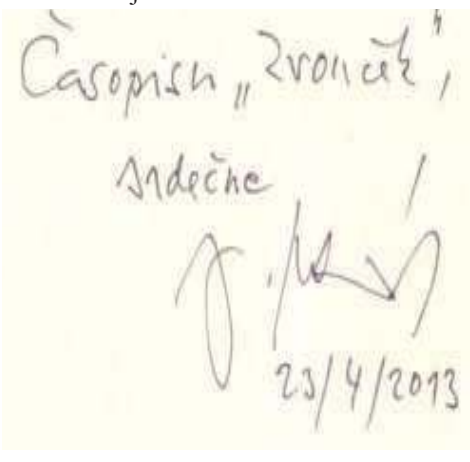 Časopisu „Zvonček",
srdečne
23/4/2013